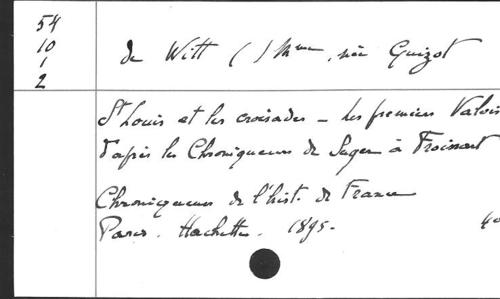 54
10
1
2
de Witt ( ) Mme, née Guizot
St Louis et les croisades - Les premiers Valois
d'après les Chroniqueurs de Suger à Froissart
Chroniqueurs de l'hist. de France
Paris. Hachette. 1895.
4o